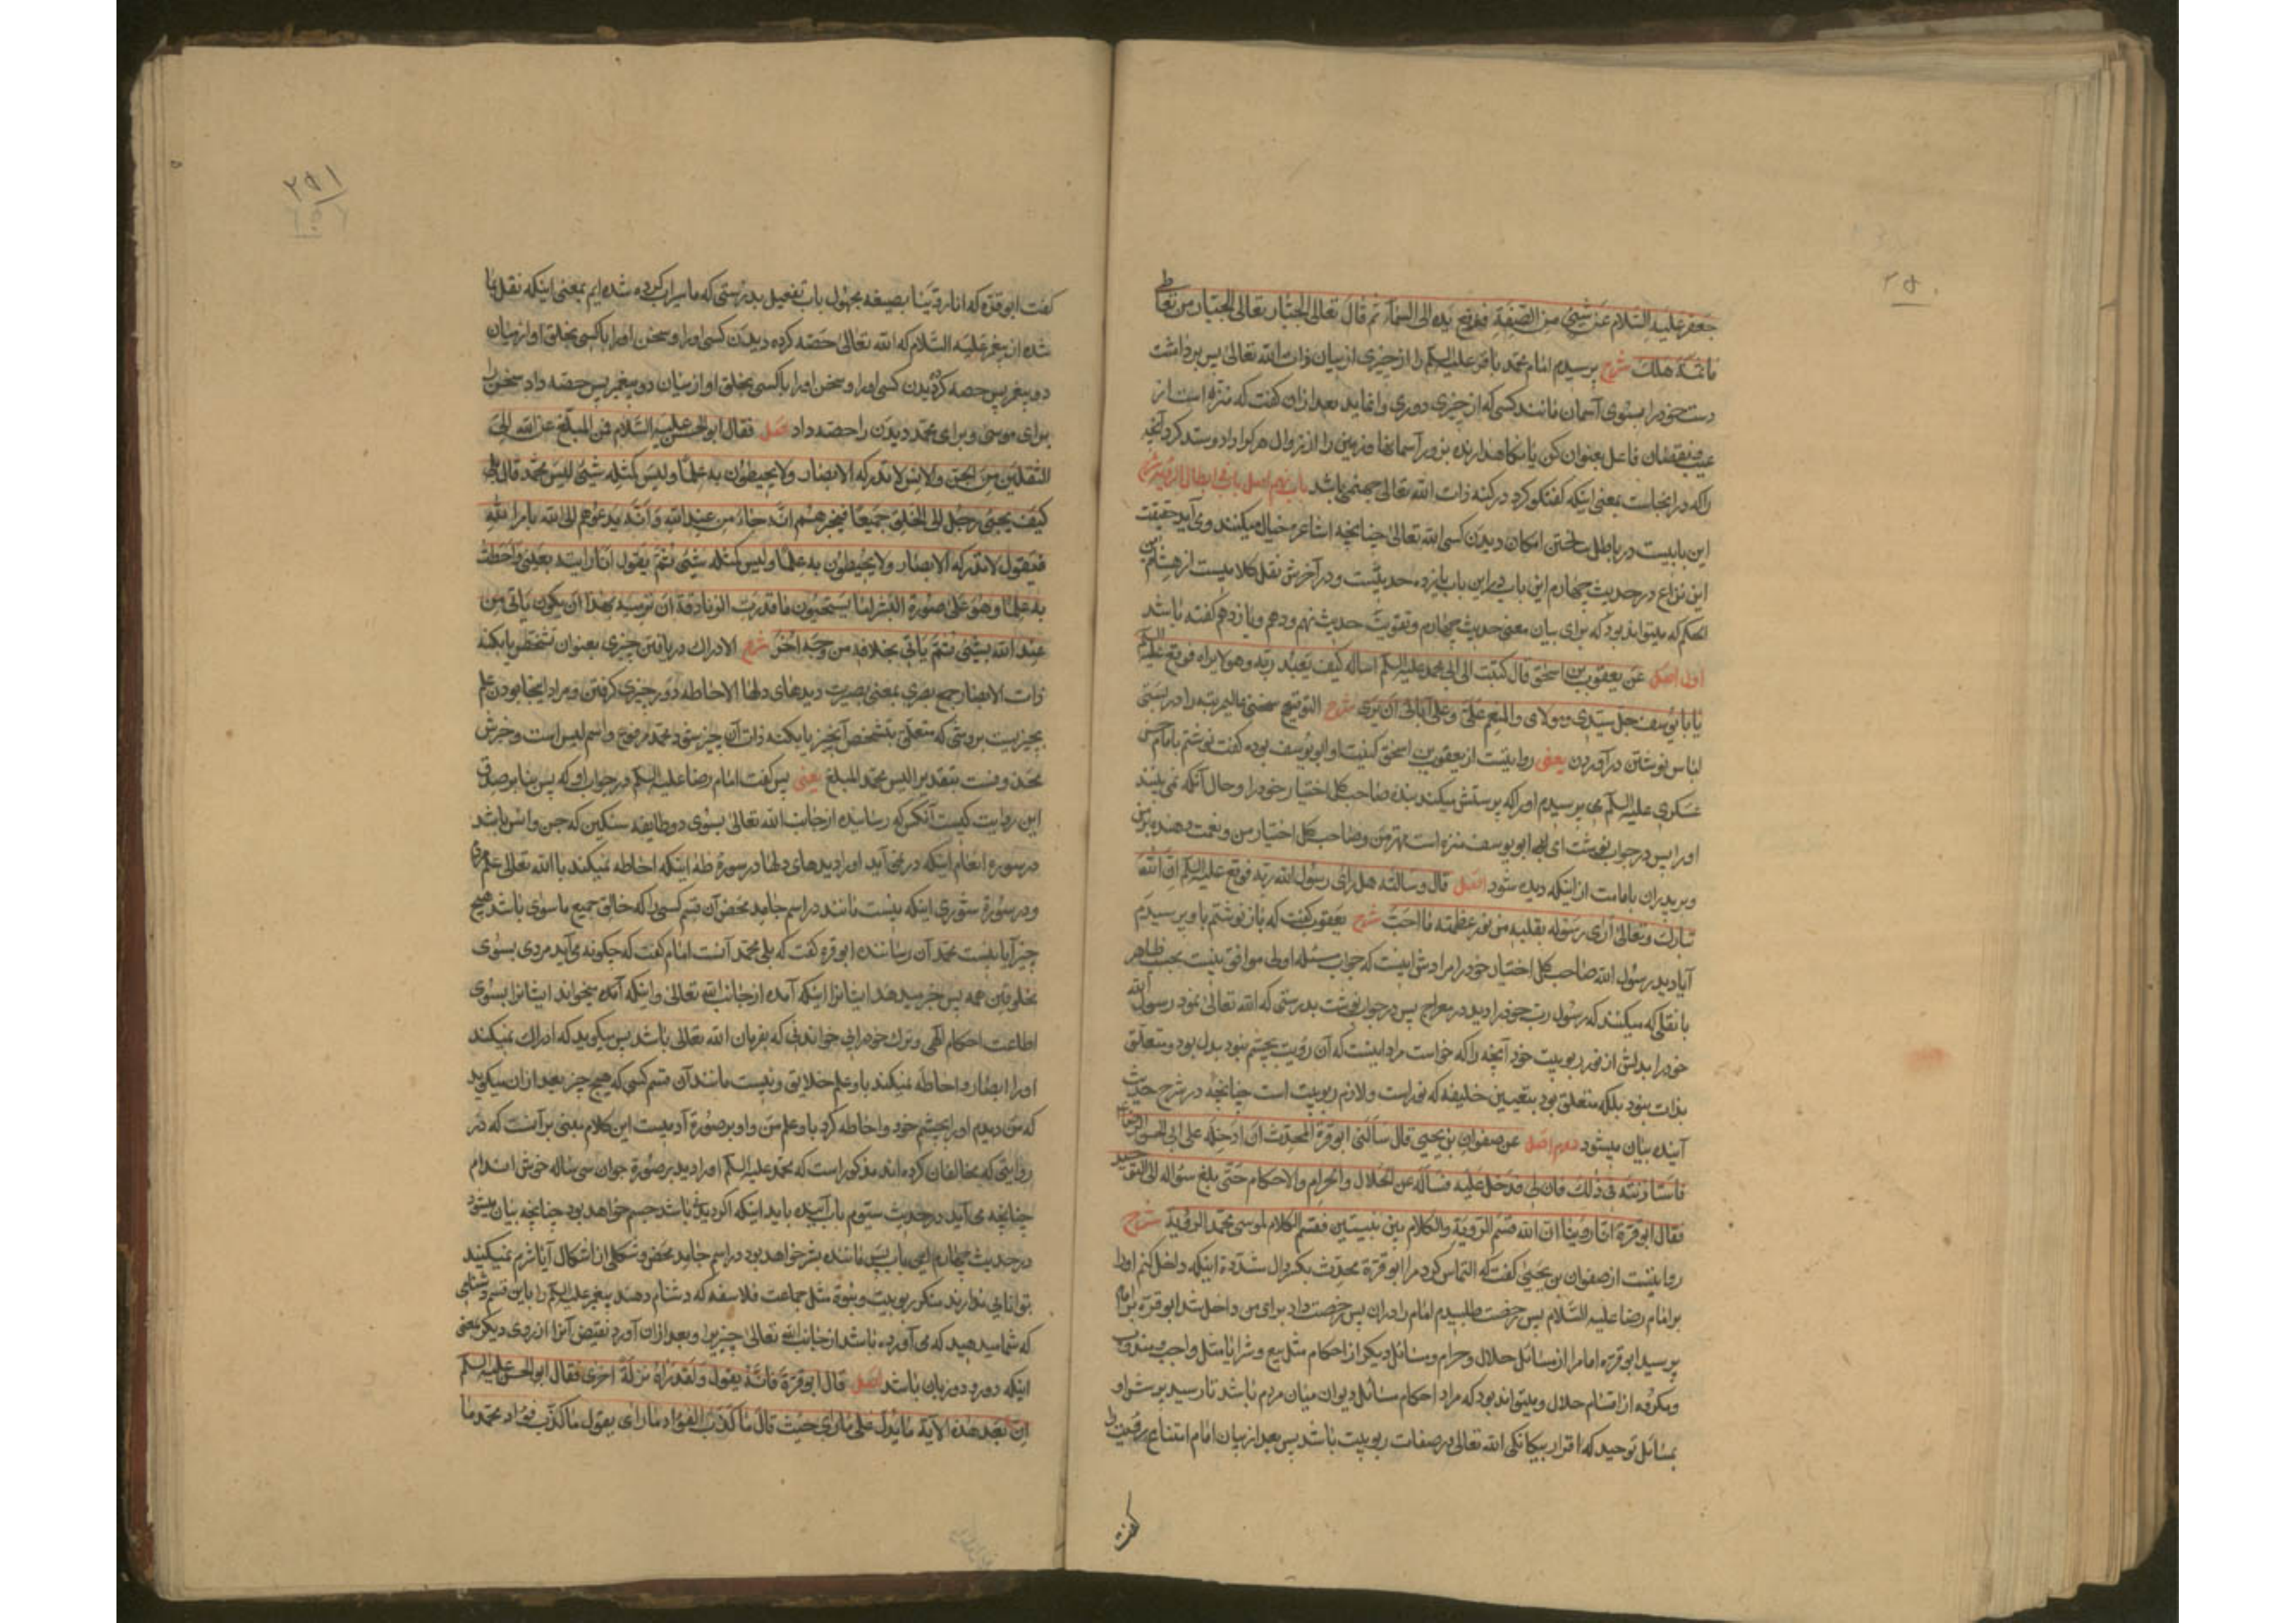 جعفر علیه السلام عن شیئ من الصفة فرفع یده الی السماء ثم قال تعالی الجبار تعالی الجبار من تعاطی
ما ثمة هلک شرح پرسیدم امام محمد باقر علیه السلم را از چیزی از بیان ذات الله تعالی پس برداشت
دست خود را بسوی آسمان مانند کسی که از چیزی دوری وا نماید بعد از ان گفت که منزه است از
عیب و نقصان فاعل بعنوان کن یا نگاهدارنده بزور آسمانها و زمین را از زوال هر که داد و ستد کرد آنچه
را که در اینجاست بمعنی اینکه گفتگو کرد در کنه ذات الله تعالی جهنمی باشد باب نهم اصل باب ابطال الرؤیة شرح
این بابیست در باطل ساختن امکان دیدن کسی الله تعالی چنانچه اشاعره خیال میکنند و می آید حقیقت
این نزاع در حدیث چهارم این باب در این باب یازده حدیثست و در آخرش نقل کلامیست از هشام بن
الحکم که میتواند بود که برای بیان معنی حدیث چهارم و تقویت حدیث نهم و دهم و یازدهم گفته باشد
اول اصل عن یعقوب بن اسحق قال کتبت الی ابی محمد علیه السلم اساله کیف یعبد ربه و هو لا یراه فوقع علیه السلم
یا با یوسف جل سیدی و مولای و المنعم علی و علی آبائی ان یری شرح التوقیع سخنی
لباس نوشتن در آوردن یعنی روایتست از یعقوب بن اسحق کنیت او ابو یوسف بوده گفت نوشتم بامام حسن
عسکری علیه السلم می پرسیدم او را که پرستش میکند بنده صاحب کل اختیار خود را و حال آنکه نمی بیند
او را پس در جواب نوشت ای ابو یوسف منزه است مهتر من و صاحب کل اختیار من و نعمت دهنده بر من
و بر پدران با مامت از اینکه دیده شود اصل قال و سالته هل رای رسول الله ربه فوقع علیه السلم ان الله
تبارک و تعالی اری رسوله بقلبه من نور عظمته ما احب شرح یعقوب گفت که باز نوشتم باو پرسیدم
آیا دید رسول الله صاحب کل اختیار خود را مرادش اینست که جواب مسئله اولی موافق نیست بحسب ظاهر
با نقلی که میکنند که رسول رب خود را دید در معراج پس در جواب نوشت بدرستی که الله تعالی نمود رسول الله
خود را بدلش از نور ربوبیت خود آنچه را که خواست مراد اینست که آن رؤیت بچشم نبود بدل بود و متعلق
بذات نبود بلکه متعلق بود بتعیین خلیفه که نور است و لازم ربوبیت است چنانچه در شرح حدیث
آینده بیان میشود دوم اصل عن صفوان بن یحیی قال سالنی ابو قرة المحدث ان ادخله علی ابی الحسن الرضا ع
فاستاذنته فی ذلک فاذن لی فدخل علیه فساله عن الحلال و الحرام و الاحکام حتی بلغ سئواله الی التوحید
فقال ابو قرة انا روینا ان الله قسم الرؤیة و الکلام بین نبیین فقسم الکلام لموسی و لمحمد الرؤیة شرح
روایتست از صفوان بن یحیی گفت که التماس کرد مرا ابو قرة محدث بکسر دال مشددة اینکه داخل کنم او را
بر امام رضا علیه السلام پس رخصت طلبیدم امام را در ان پس رخصت داد برای من داخل شد ابو قره بر امام
پرسید ابو قره امام را از مسائل حلال و حرام و مسائل دیگر از احکام مثل بیع و شرا یا مثل واجب و مندوب
و مکروه از اقسام حلال و میتواند بود که مراد احکام مسائل دیوان میان مردم باشد تا رسید پرسش او
بمسائل توحید که اقرار بیگانگی الله تعالی در صفات ربوبیت باشد پس بعد از بیان امام امتناع رؤیت را
گفت
۲۹۱
گفت ابو قره که انا روینا بصیغه مجهول باب تفعیل بدرستی که ما سیراب کرده شده ایم بمعنی اینکه نقل بما
شده از پیغمبر علیه السلام که الله تعالی حصه کرده دیدن کسی او را و سخن او را با کسی بخلق او از میان
دو پیغمبر پس حصه کرد دیدن کسی او را و سخن او را با کسی بخلق او از میان دو پیغمبر پس حصه داد سخن را
برای موسی و برای محمد دیدن را حصه داد اصل فقال ابو الحسن علیه السلام فمن المبلغ عن الله الی
الثقلین من الجن و الانس لا تدرکه الابصار و لا یحیطون به علما و لیس کمثله شیئ الیس محمد قال بلی
کیف یجیئ رجل الی الخلق جمیعا فیخبرهم انه جاء من عند الله و انه یدعوهم الی الله بامر الله
فیقول لا تدرکه الابصار و لا یحیطون به علما و لیس کمثله شیئ ثم یقول انا رایته بعینی و احطت
به علما و هو علی صورة البشر اما یستحیون ما قدرت الزنادقة ان ترمیه بهذا ان یکون یاتی من
عند الله بشیئ ثم یاتی بخلافه من وجه اخر شرح الادراک دریافتن چیزی بعنوان تشخص یا بکنه
ذات الابصار جمع بصری بمعنی بصیرت دیدهای دلها الاحاطه دور چیزی گرفتن و مراد اینجا بودن علم
بچیزیست بروشی که متعلق بتشخص آنچیز یا بکنه ذات آن چیز شود محمد مرفوع و اسم لیس است و خبرش
محذوفست بتقدیر الیس محمد المبلغ یعنی پس گفت امام رضا علیه السلم در جواب او که پس بنابر صدق
این روایت کیست آنکس که رساننده از جانب الله تعالی بسوی دو طایفه سنگین که جن و انس باشد
در سوره انعام اینکه در نمی آید او را دیدهای دلها در سورة طه اینکه احاطه نمیکنند با الله تعالی
و در سورة شوری اینکه نیست مانند در اسم جامد محض آن قسم کسی را که خالق جمیع ماسوی باشد هیچ
چیز آیا نیست محمد آن رساننده ابو قره گفت که بلی محمد آنست امام گفت که چگونه می آید مردی بسوی
مخلوقین همه پس خبر میدهد ایشانرا اینکه آمده از جانب الله تعالی و اینکه آمده میخواند ایشانرا بسوی
اطاعت احکام الهی و ترک خودرایی خواندنی که بفرمان الله تعالی باشد پس میگوید که ادراک نمیکند
او را ابصار و احاطه نمیکند باو علم خلایق و نیست مانند آن قسم کسی که هیچ چیز بعد از ان میگوید
که من دیدم او را بچشم خود و احاطه کرد باو علم من و او بر صورة آدمیست این کلام مبنی بر آنست که در
روایتی که مخالفان کرده اند مذکور است که محمد علیه السلم او را دید بر صورة جوان سی ساله خوش اندام
چنانچه می آید در حدیث سئوم باب آینده باید اینکه اگر دیدنی باشد جسم خواهد بود چنانچه بیان میشود
در حدیث چهارم این باب پس ماننده بشر خواهد بود در اسم جامد محض و شکلی از اشکال آیا شرم نمیکنید
توانایی ندارند منکر ربوبیت و نبوة مثل جماعت فلاسفه که دشنام دهند پیغمبر علیه السلم را باین قسم دشنامی
که شما میدهید که می آورده باشد از جانب الله تعالی چیزیرا و بعد از ان آورد نقیض آنرا از روی دیگر بمعنی
اینکه دو رو دو زبان باشد اصل قال ابو قرة فانه یقول و لقد راه نزلة اخری فقال ابو الحسن علیه السلم
ان بعد هذه الایة ما یدل علی ما رای حیث قال ما کذب الفؤاد ما رای یقول ما کذب فؤاد محمد ما